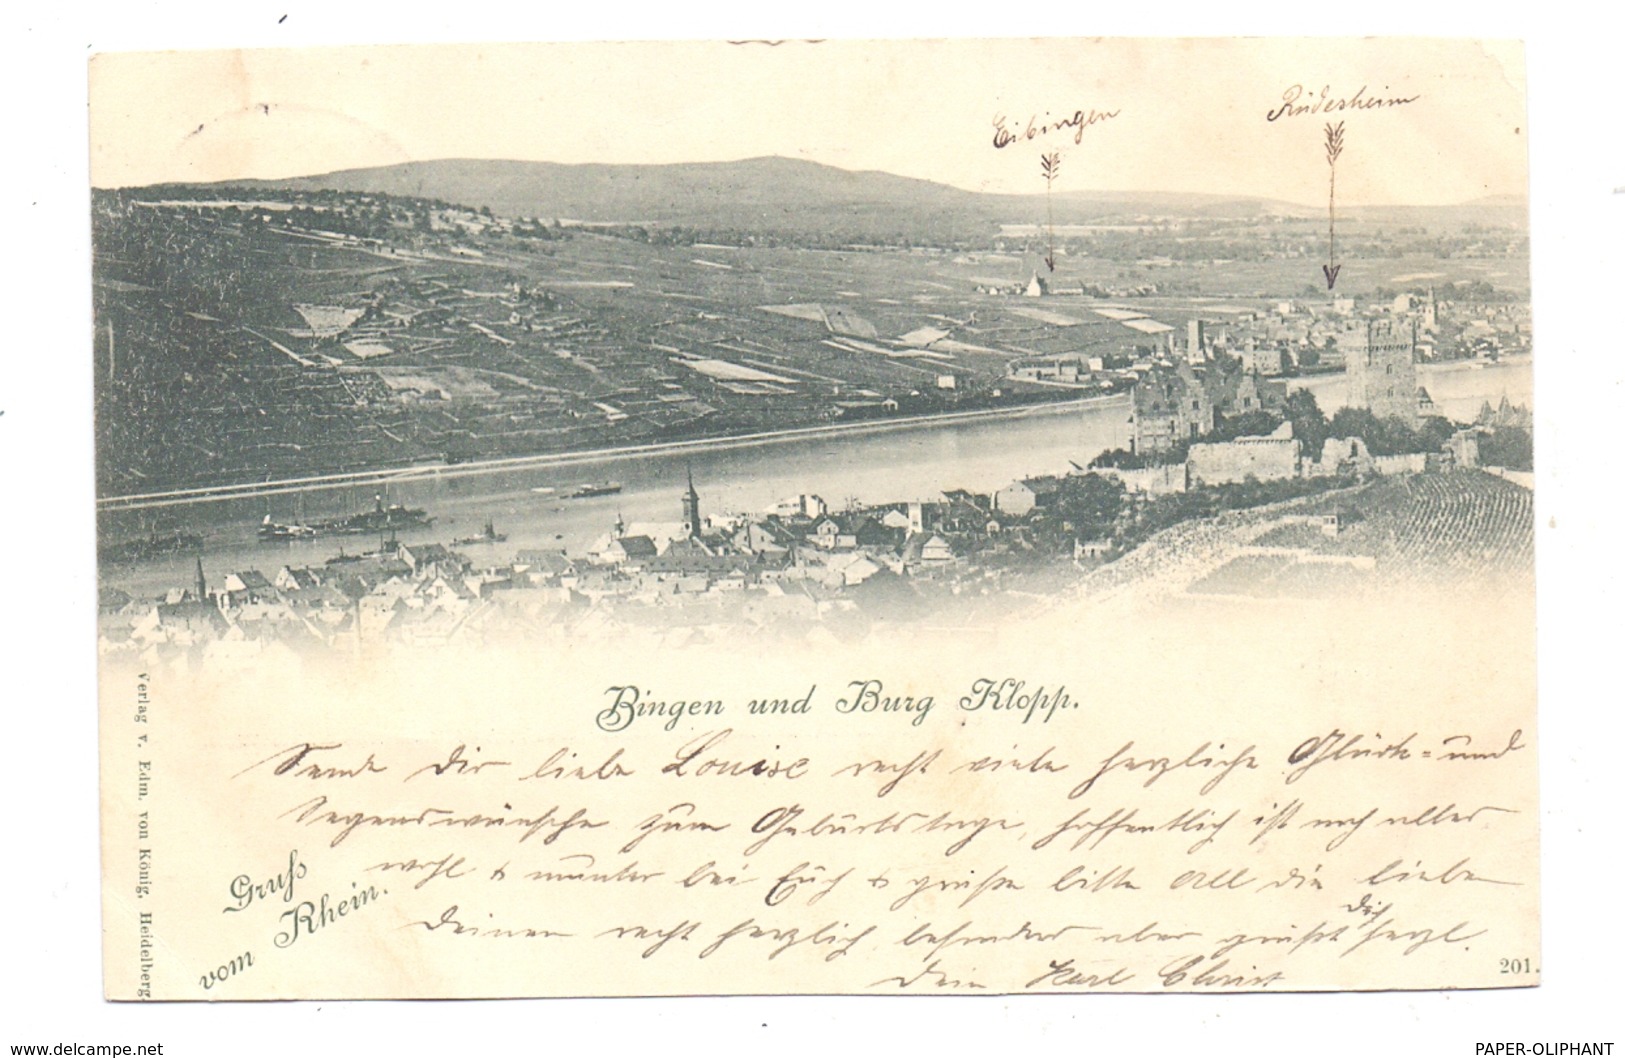 Eibingen
Rüdesheim
Bingen und Burg Klopp.
Sende Dir liebe Louise recht viele herzliche Glück= und
Segenswünsche zum Geburtstage, hoffentlich ist noch alles
wohl & munter bei Euch & grüße bitte all die lieben
Deinen recht herzlich, besonders aber grüßt Dich herzl.
Dein Karl Christ
Gruß
vom Rhein.
Verlag v. Edm. von König, Heidelberg.
201.
www.delcampe.net
PAPER-OLIPHANT